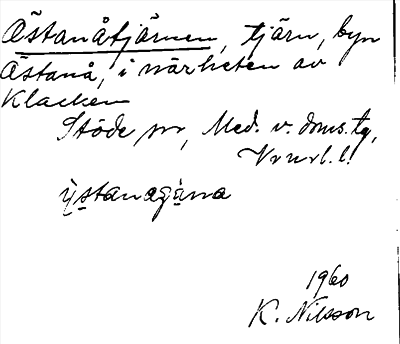 Östanåtjärnen, tjärn, byn
Östanå, i närheten av
Klacken
Stöde sn, Med. v. doms. tg,
Vrnrl. l.
ỳstanagäna
1960
K. Nilsson